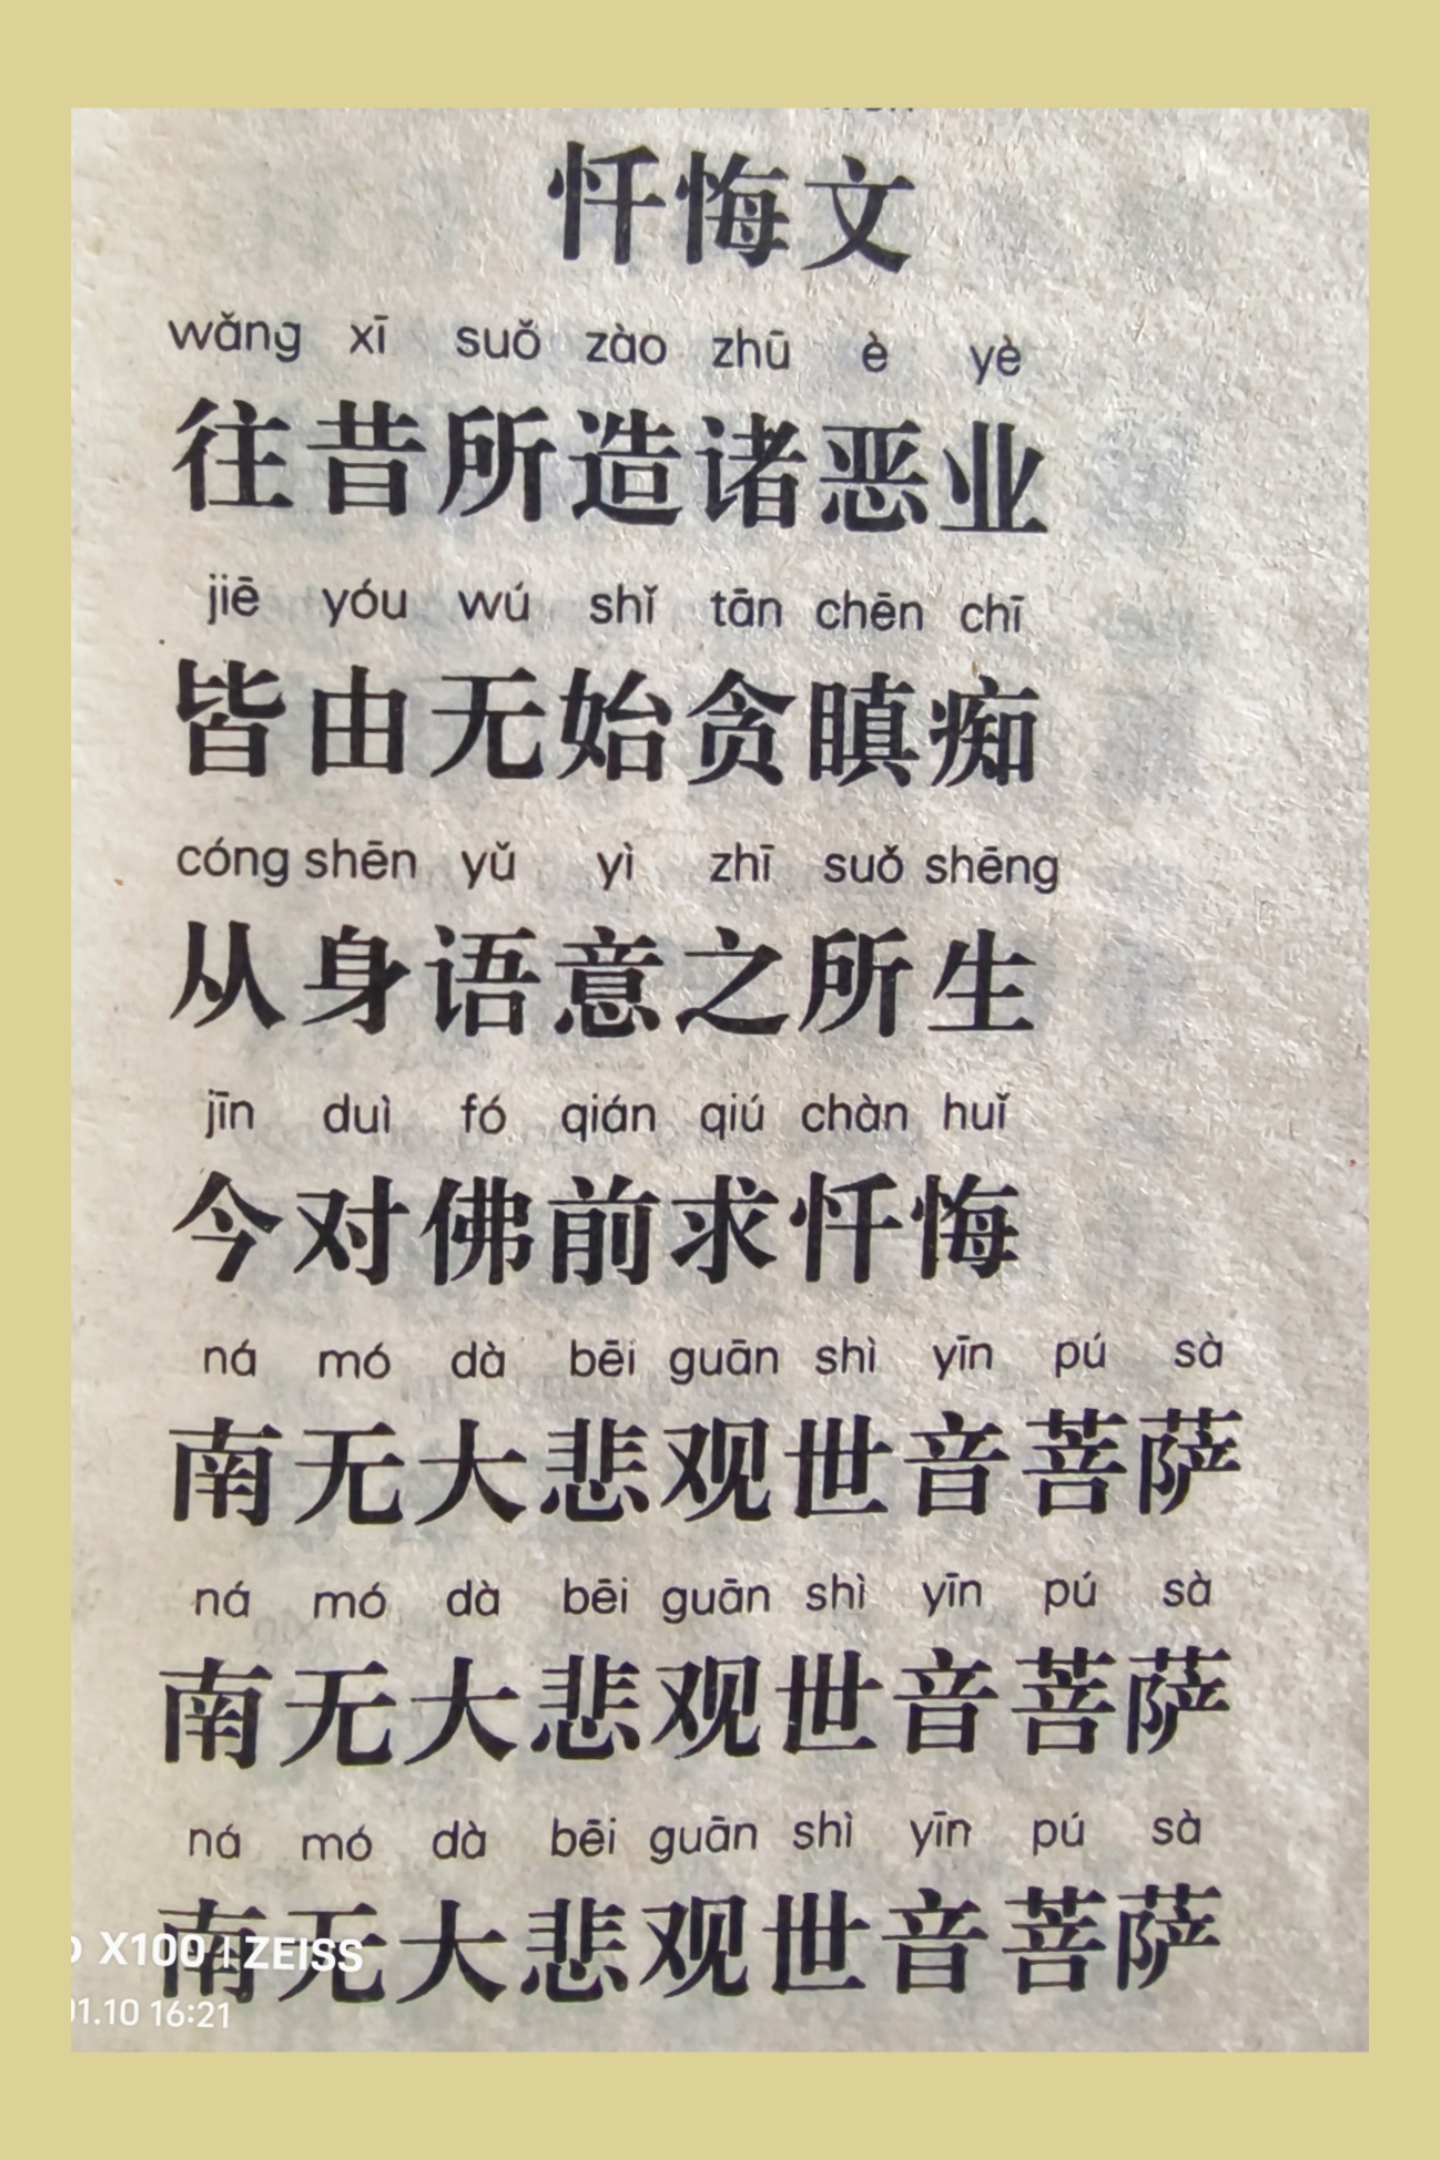 忏悔文
wǎng xī suǒ zào zhū è yè
往昔所造诸恶业
jiē yóu wú shǐ tān chēn chī
皆由无始贪瞋痴
cóng shēn yǔ yì zhī suǒ shēng
从身语意之所生
jīn duì fó qián qiú chàn huǐ
今对佛前求忏悔
ná mó dà bēi guān shì yīn pú sà
南无大悲观世音菩萨
ná mó dà bēi guān shì yīn pú sà
南无大悲观世音菩萨
ná mó dà bēi guān shì yīn pú sà
南无大悲观世音菩萨
X100 | ZEISS
01.10 16:21